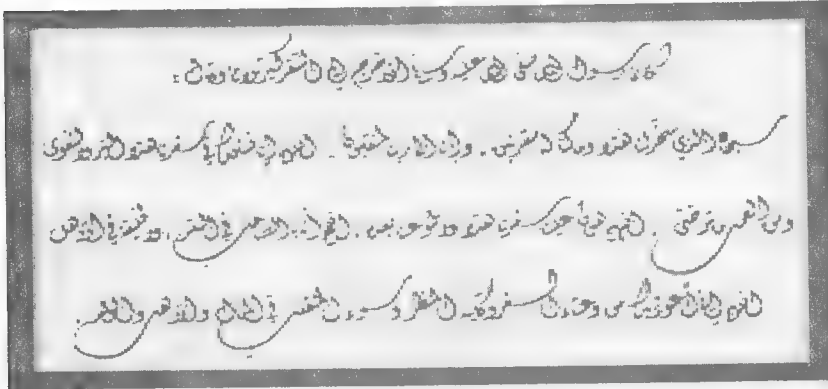 كان رسول الله صلى الله عليه وسلم إذا خرج إلى السفر كبر ودعا وقال :
سبحان الذي سخر لنا هذا وما كنا له مقرنين . وإنا إلى ربنا لمنقلبون . اللهم إنا نسألك في سفرنا هذا البر والتقوى
ومن العمل ما ترضى . اللهم هون علينا سفرنا هذا واطو عنا بعده . اللهم أنت الصاحب في السفر ، والخليفة في الأهل
اللهم إني أعوذ بك من وعثاء السفر وكآبة المنظر وسوء المنقلب في المال والأهل والولد .